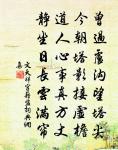 曾過盧溝望塔尖
今朝塔影接虛檐
道人心事真方丈
靜坐日長雲滿簾
文天祥宮籍監